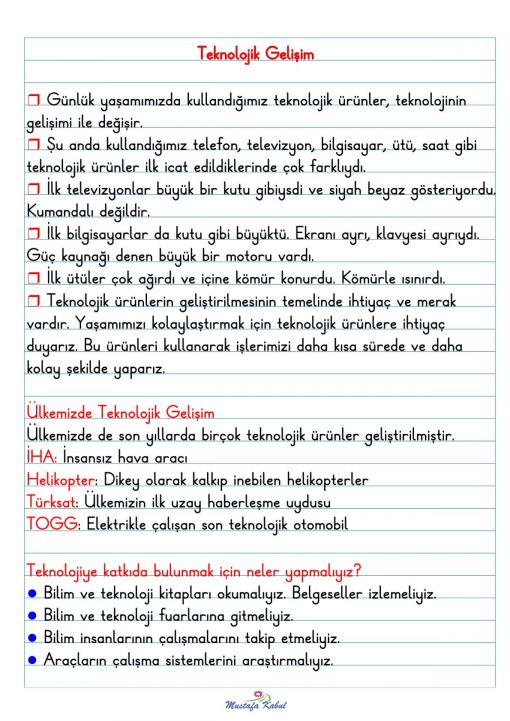 Teknolojik Gelişim
❒ Günlük yaşamımızda kullandığımız teknolojik ürünler, teknolojinin
gelişimi ile değişir.
❒ Şu anda kullandığımız telefon, televizyon, bilgisayar, ütü, saat gibi
teknolojik ürünler ilk icat edildiklerinde çok farklıydı.
❒ İlk televizyonlar büyük bir kutu gibiysdi ve siyah beyaz gösteriyordu.
Kumandalı değildir.
❒ İlk bilgisayarlar da kutu gibi büyüktü. Ekranı ayrı, klavyesi ayrıydı.
Güç kaynağı denen büyük bir motoru vardı.
❒ İlk ütüler çok ağırdı ve içine kömür konurdu. Kömürle ısınırdı.
❒ Teknolojik ürünlerin geliştirilmesinin temelinde ihtiyaç ve merak
vardır. Yaşamımızı kolaylaştırmak için teknolojik ürünlere ihtiyaç
duyarız. Bu ürünleri kullanarak işlerimizi daha kısa sürede ve daha
kolay şekilde yaparız.
Ülkemizde Teknolojik Gelişim
Ülkemizde de son yıllarda birçok teknolojik ürünler geliştirilmiştir.
İHA: İnsansız hava aracı
Helikopter: Dikey olarak kalkıp inebilen helikopterler
Türksat: Ülkemizin ilk uzay haberleşme uydusu
TOGG: Elektrikle çalışan son teknolojik otomobil
Teknolojiye katkıda bulunmak için neler yapmalıyız?
● Bilim ve teknoloji kitapları okumalıyız. Belgeseller izlemeliyiz.
● Bilim ve teknoloji fuarlarına gitmeliyiz.
● Bilim insanlarının çalışmalarını takip etmeliyiz.
● Araçların çalışma sistemlerini araştırmalıyız.
Mustafa Kabul